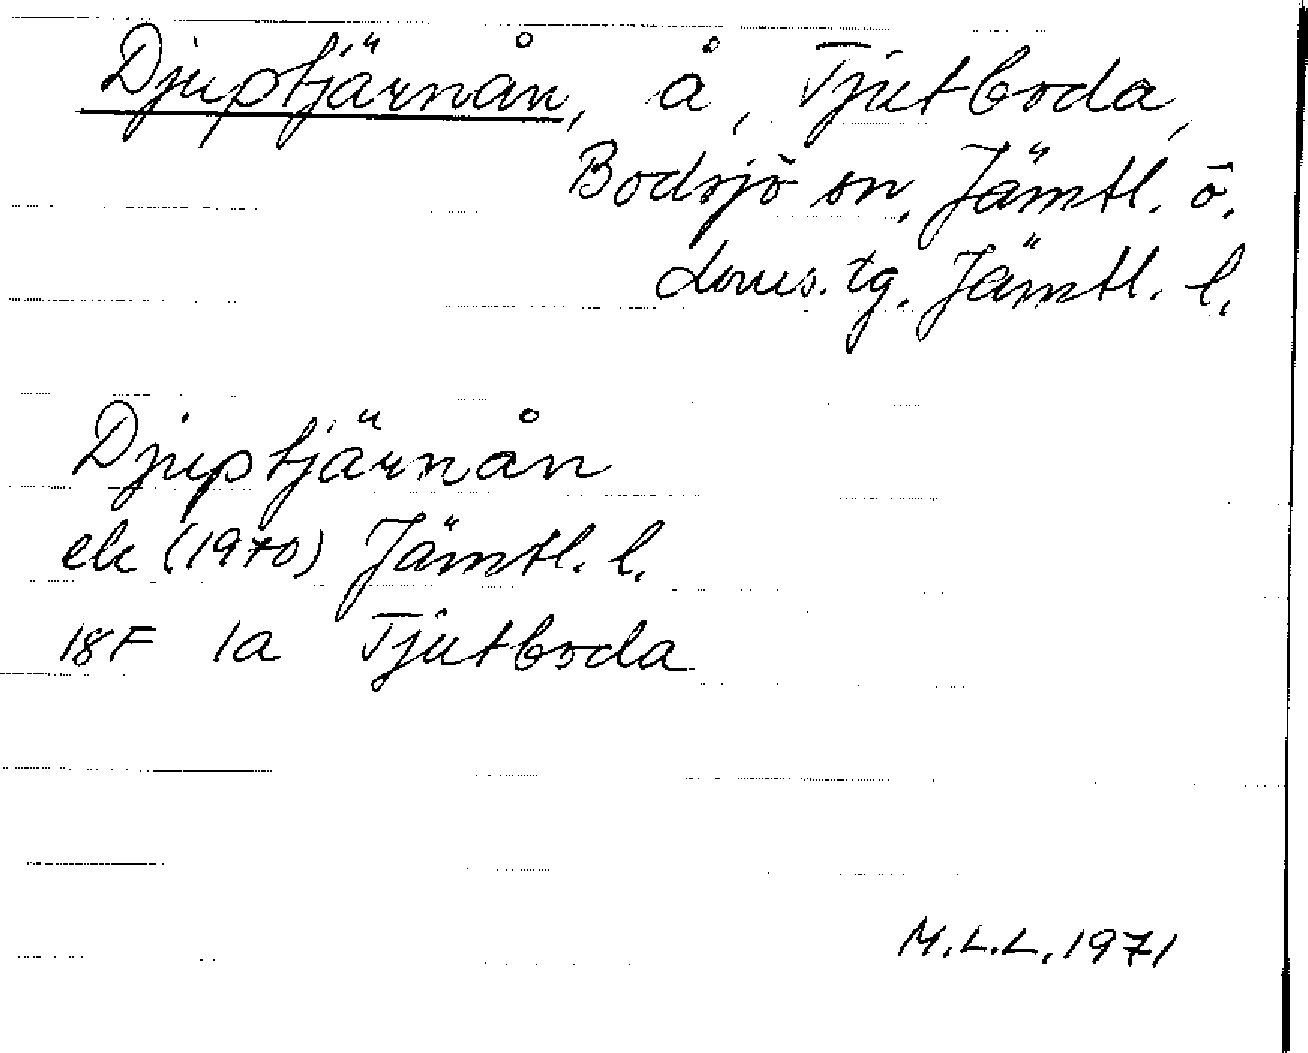 Djuptjärnån, å, Tjutboda,
Bodsjö sn. Jämtl. ö.
doms. tg. Jämtl. l.
Djuptjärnån
ek (1970) Jämtl. l.
18F 1a Tjutboda
M.L.L. 1971